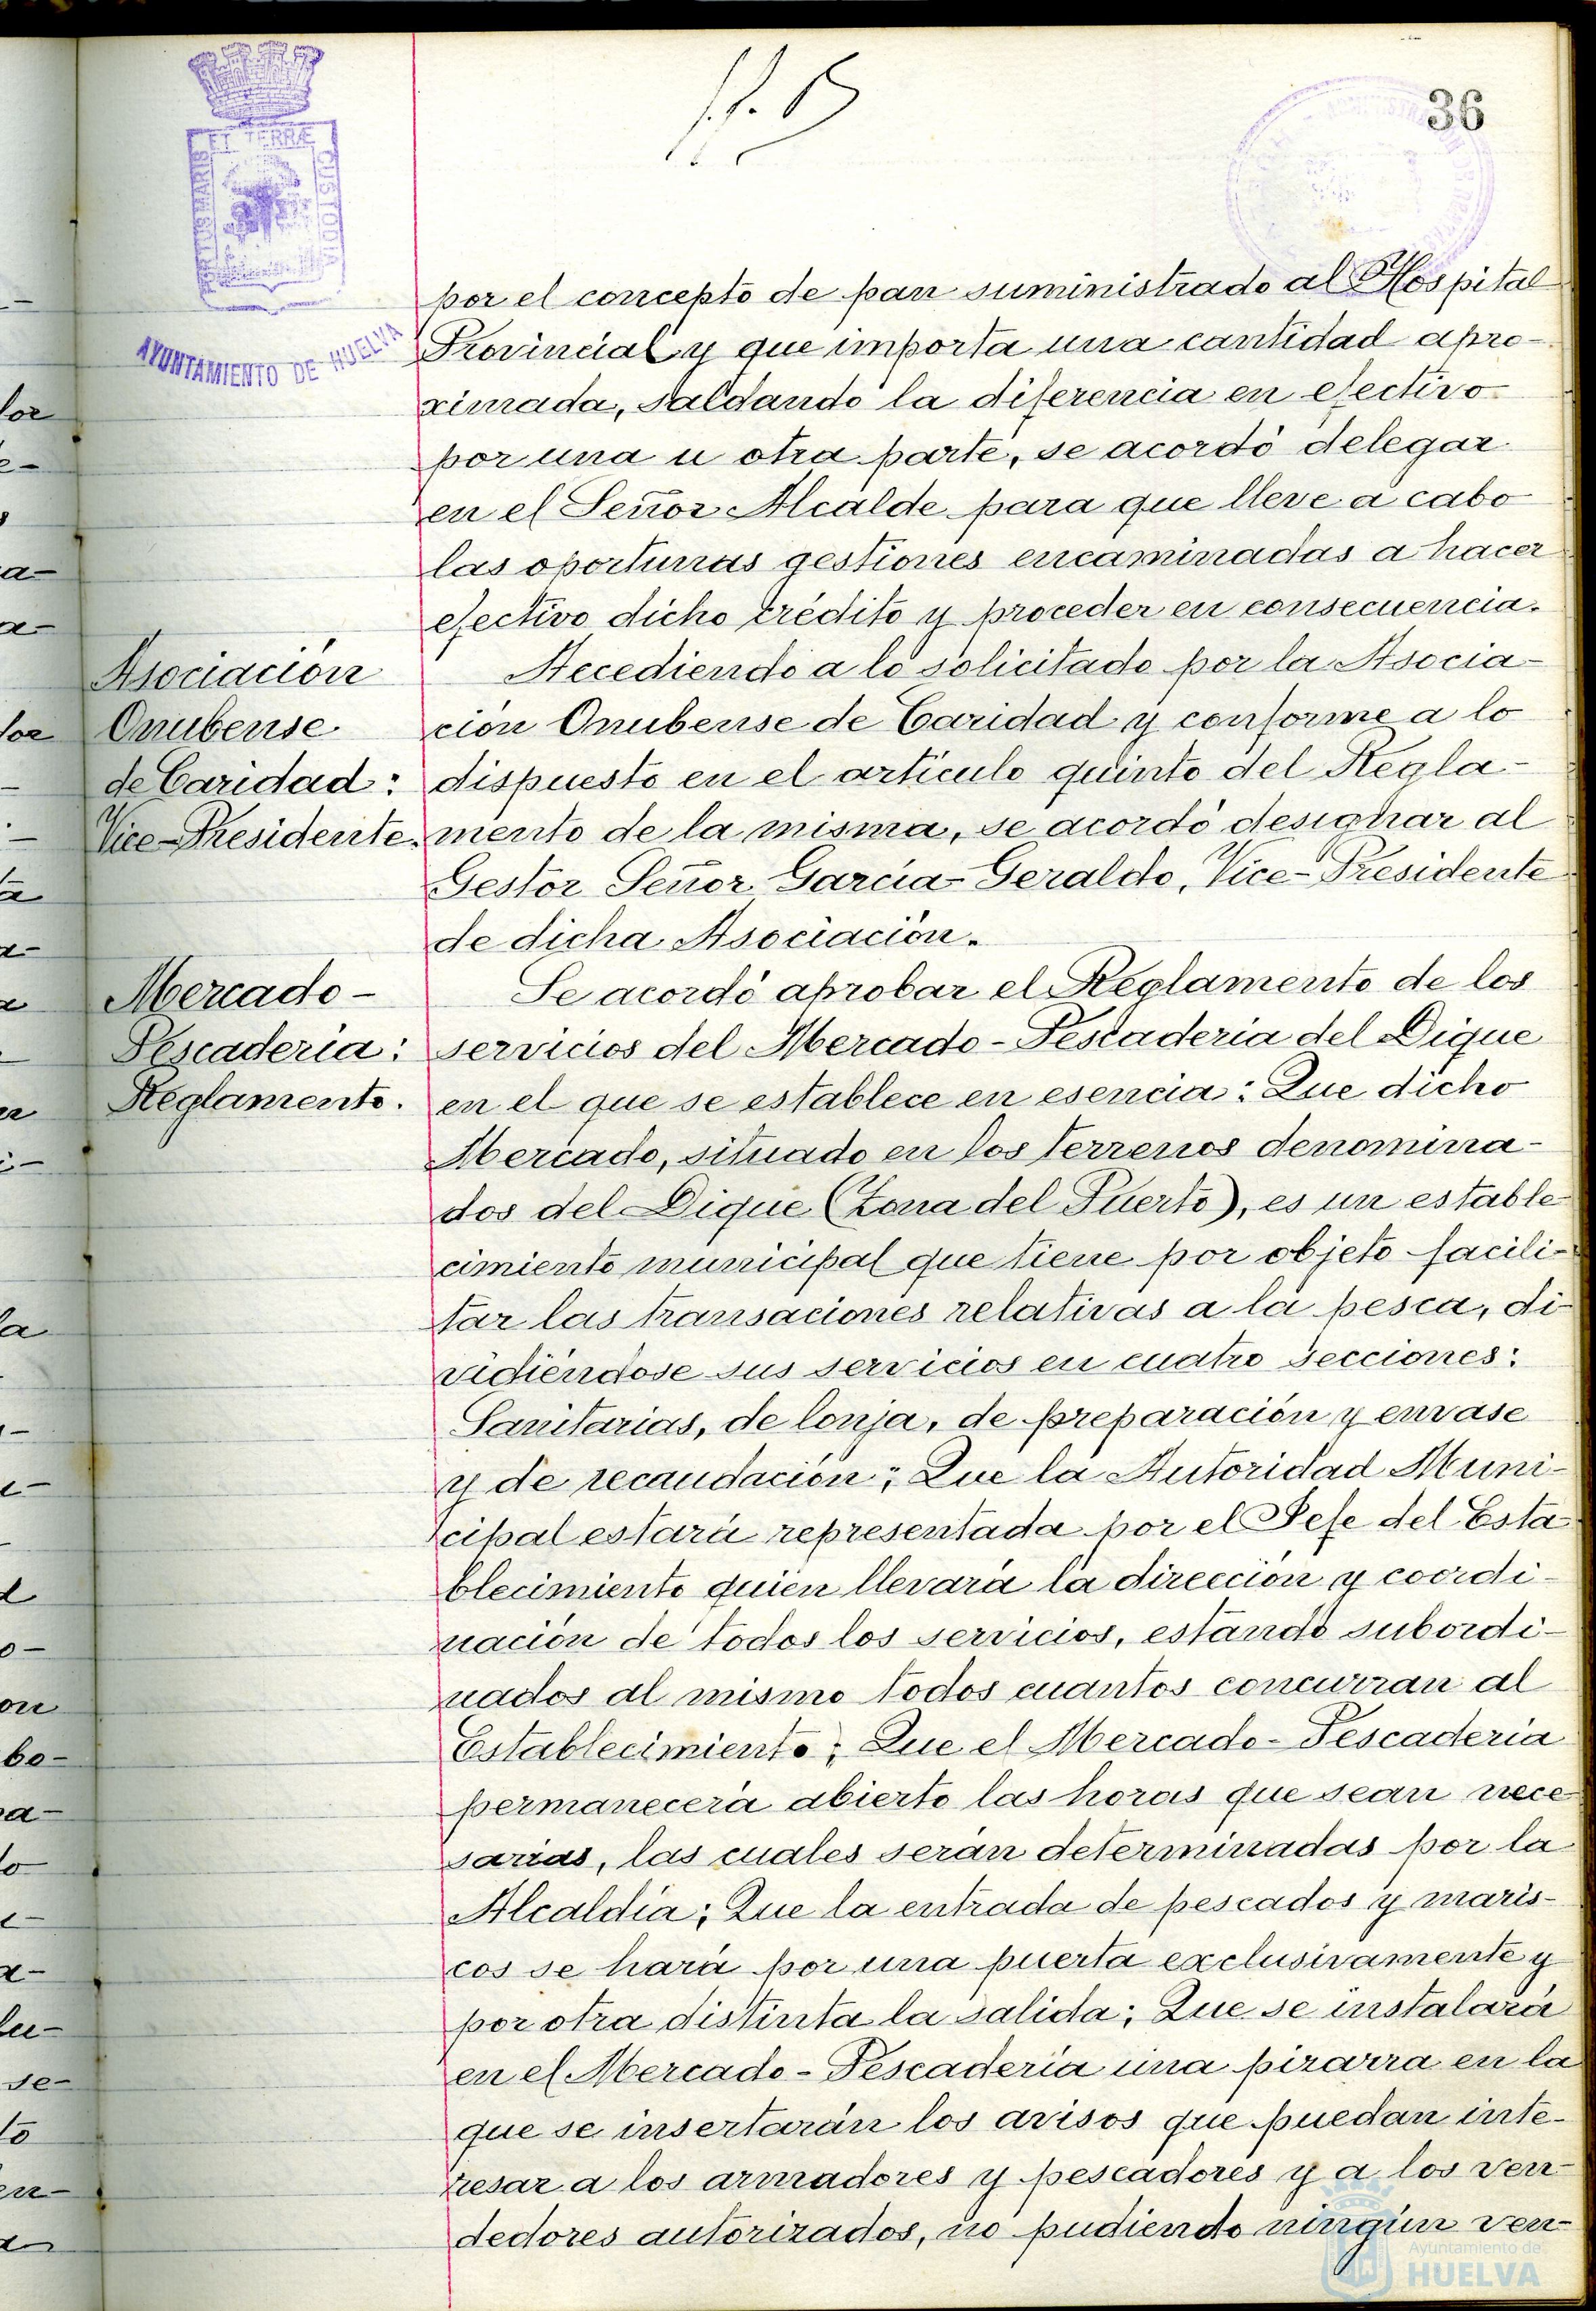 36
PORTUS MARIS ET TERRÆ CUSTODIA
AYUNTAMIENTO DE HUELVA
por el concepto de pan suministrado al Hospital
Provincial y que importa una cantidad apro-
ximada, saldando la diferencia en efectivo
por una u otra parte, se acordó delegar
en el Señor Alcalde para que lleve a cabo
las oportunas gestiones encaminadas a hacer
efectivo dicho crédito y proceder en consecuencia.
Asociación
Onubense
de Caridad:
Vice-Presidente.
Accediendo a lo solicitado por la Asocia-
ción Onubense de Caridad y conforme a lo
dispuesto en el artículo quinto del Regla-
mento de la misma, se acordó designar al
Gestor Señor García Geraldo, Vice-Presidente
de dicha Asociación.
Mercado-
Pescadería:
Reglamento.
Se acordó aprobar el Reglamento de los
servicios del Mercado-Pescadería del Dique
en el que se establece en esencia: Que dicho
Mercado, situado en los terrenos denomina-
dos del Dique (Zona del Puerto), es un estable
cimiento municipal que tiene por objeto facili-
tar las transaciones relativas a la pesca, di-
vidiéndose sus servicios en cuatro secciones:
Sanitarias, de lonja, de preparación y envase
y de recaudación; Que la Autoridad Muni-
cipal estará representada por el Jefe del Esta
blecimiento quien llevará la dirección y coordi-
nación de todos los servicios, estando subordi-
nados al mismo todos cuantos concurran al
Establecimiento; Que el Mercado-Pescadería
permanecerá abierto las horas que sean nece
sarias, las cuales serán determinadas por la
Alcaldía; Que la entrada de pescados y maris-
cos se hará por una puerta exclusivamente y
por otra distinta la salida; Que se instalará
en el Mercado-Pescadería una pizarra en la
que se insertarán los avisos que puedan inte-
resar a los armadores y pescadores y a los ven-
dedores autorizados, no pudiendo ningún ven-
Ayuntamiento de
HUELVA